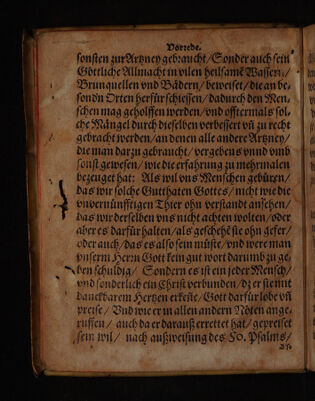 Vorrede.
sonsten zur Artzney gebraucht / Sonder auch sein
Göttliche Allmacht in vilen heilsamẽ Wassern /
Brunquellen vnd Bädern / beweiset / die an be-
sondn Orten herfür schiessen / dadurch den Men-
schen mag geholffen werden / vnd offtermals sol-
che Mängel durch dieselben verbessert vñ zu recht
gebracht werden / an denen alle andere Artzney /
die man darzu gebraucht / vergebens vnnd vmb
sonst gewesen / wie die erfahrung zu mehrmalen
bezeuget hat: Als wil vns Menschen gebüren /
das wir solche Gutthaten Gottes / nicht wie die
vnvernünfftigen Thier ohn verstandt ansehen /
das wir derselben vns nicht achten wolten / oder
aber es darfür halten / als geschehe sie ohn gefer /
oder auch / das es also sein müste / vnd were man
vnserm Herrn Gott kein gut wort darumb zu ge-
ben schuldig / Sondern es ist ein jeder Mensch /
vnd sonderlich ein Christ verbunden / dz er sie mit
danckbarem Hertzen erkeñe / Gott darfür lobe vñ
preise / Vnd wie er in allen andern Nöten ange-
ruffen / auch da er darauß errettet hat / gepreiset
sein wil / nach außweisung des 50. Psalms /